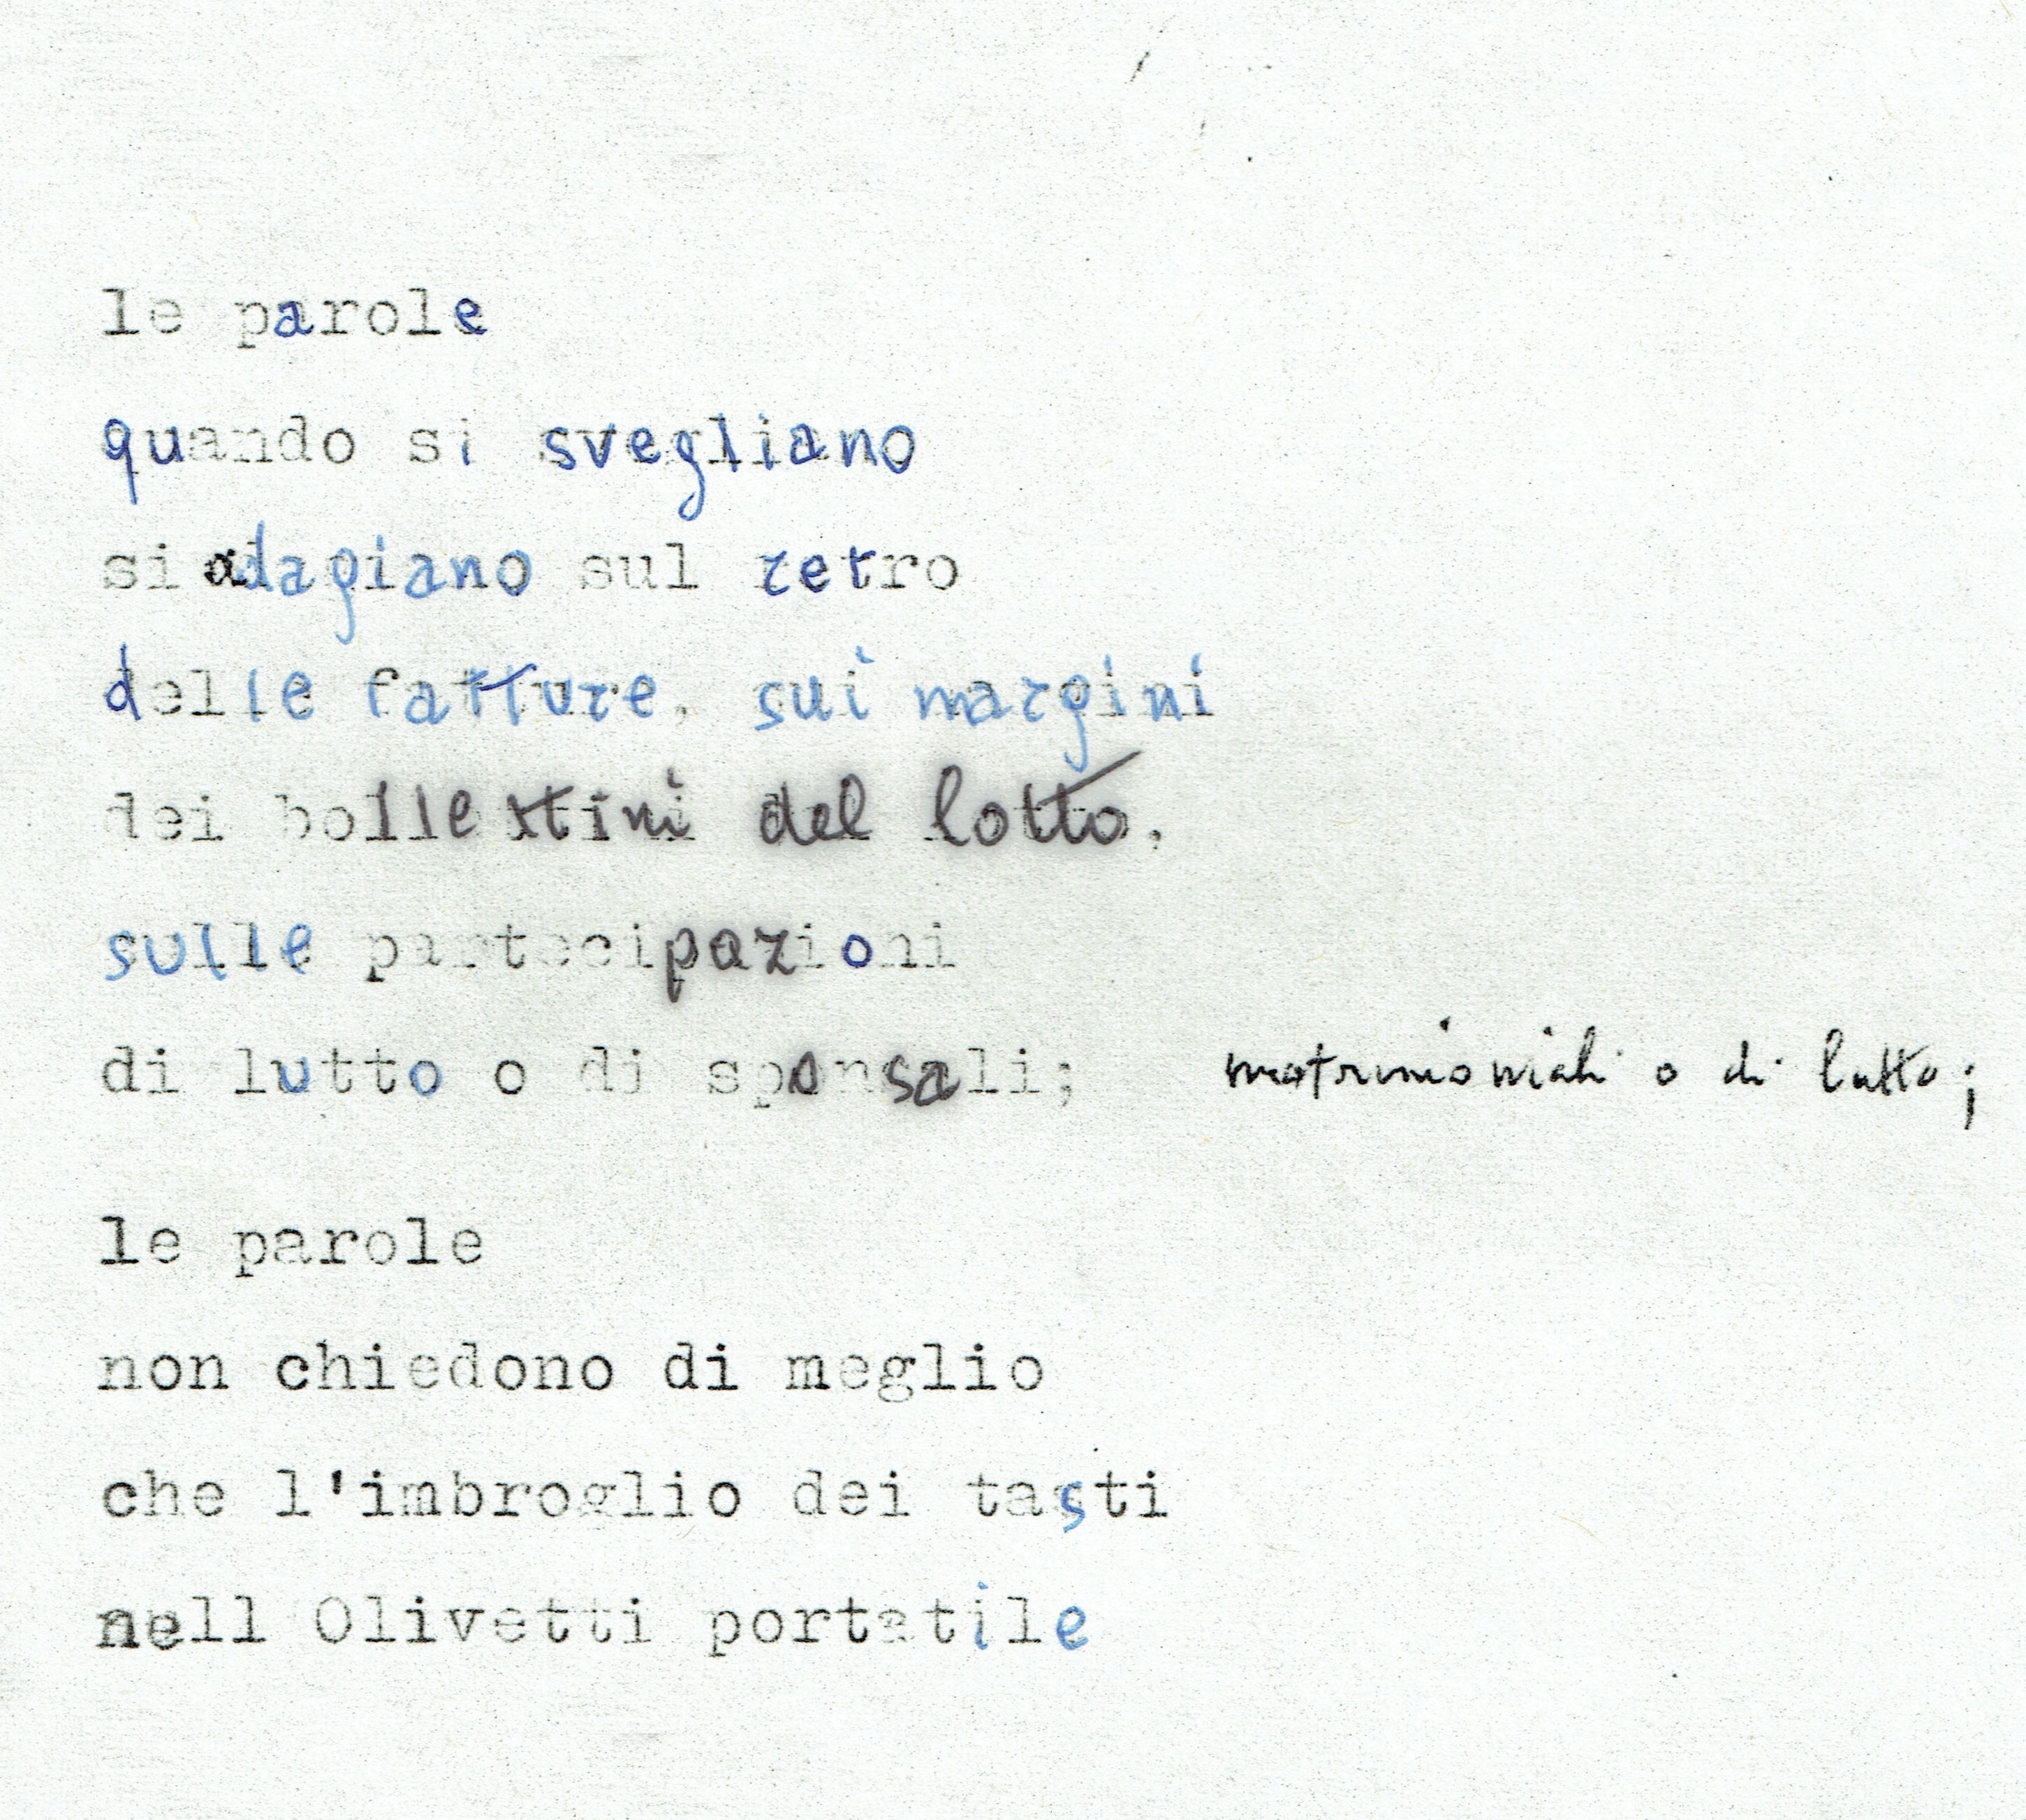 le parole
quando si svegliano
si adagiano sul retro
delle fatture, sui margini
dei bollettini del lotto,
sulle partecipazioni
di lutto o di sponsali; matrimoniali o di lutto;
le parole
non chiedono di meglio
che l'imbroglio dei tasti
nell Olivetti portatile